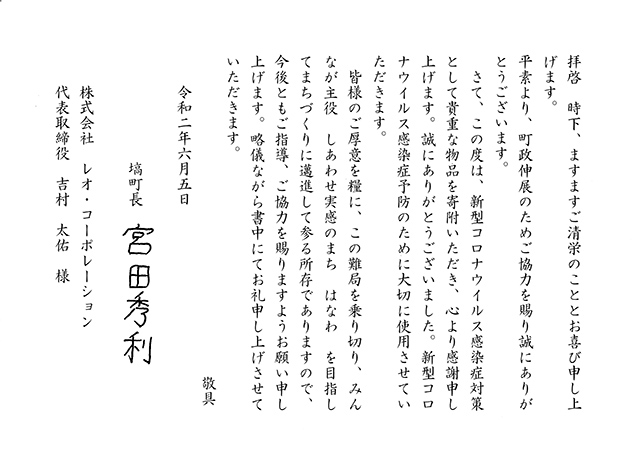 拝啓　時下、ますますご清栄のこととお喜び申し上
げます。
平素より、町政伸展のためご協力を賜り誠にありが
とうございます。
さて、この度は、新型コロナウイルス感染症対策
として貴重な物品を寄附いただき、心より感謝申し
上げます。誠にありがとうございました。新型コロ
ナウイルス感染症予防のために大切に使用させてい
ただきます。
皆様のご厚意を糧に、この難局を乗り切り、みん
なが主役　しあわせ実感のまち　はなわ　を目指し
てまちづくりに邁進して参る所存でありますので、
今後ともご指導、ご協力を賜りますようお願い申し
上げます。略儀ながら書中にてお礼申し上げさせて
いただきます。
敬具
令和二年六月五日
塙町長　宮田秀利
株式会社　レオ・コーポレーション
代表取締役　吉村　太佑　様